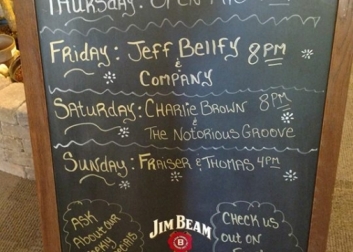 THURSDAY: OPEN MIC
FRIDAY: JEFF BELLFY 8PM
& COMPANY
SATURDAY: CHARLIE BROWN 8PM
&
THE NOTORIOUS GROOVE
SUNDAY: FRAISER & THOMAS 4PM
ASK
ABOUT OUR
JIM BEAM
B
CHECK US
OUT ON